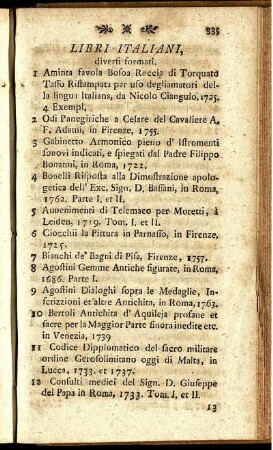 335
LIBRI ITALIANI,
diversi formati.
1 Aminta favola Bosca Reccia di Torquato
Tasso Ristampata par uso degliamatori del-
la lingua Italiana, da Nicolo Ciangulo, 1725.
4 Exempl,
2 Odi Panegiriche a Cesare del Cavaliere A,
F. Adami, in Firenze, 1755.
3 Gabinetto Armonico pieno d' Istromenti
sonovi indicati, e spiegati dal Padre Filippo
Bonanni, in Roma, 1722.
4 Bonelli Risposta alla Dimostrazione apolo-
getica dell' Exc. Sign. D, Bassani, in Roma,
1762. Parte I, et II.
5 Auuenimenti di Telemaco per Moretti, à
Leiden, 1719. Tom, I, et II.
6 Ciocchii la Pittura in Parnasso, in Firenze,
1725.
7 Bianchi de' Bagni di Pisa, Firenze, 1757.
8 Agostini Gemme Antiche figurate, in Roma,
1686. Parte I.
9 Agostini Dialoghi sopra le Medaglie, In-
scrizzioni et altre Antichita, in Roma, 1763.
10 Bertoli Antichita d' Aquileja profane et
sacre per la Maggior Parte sinora inedite etc.
in Venezia, 1739
11 Codice Dipplomatico del sacro militare
ordine Gerosolimitano oggi di Malta, in
Lucca, 1733. et 1737.
12 Consulti medici del Sign. D. Giuseppe
del Papa in Roma, 1733. Tom. I, et II.
13